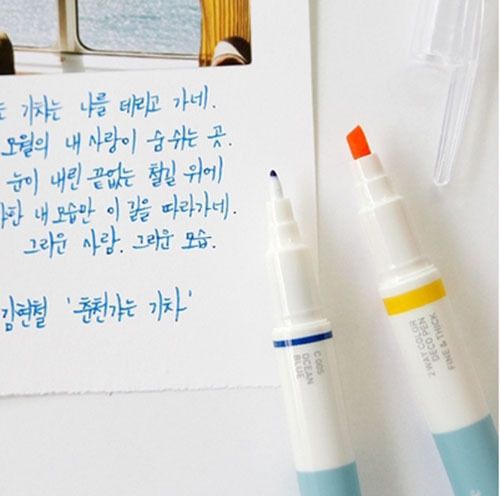 기차는 나를 데리고 가네.
오월의 내 사랑이 숨쉬는 곳.
눈이 내린 끝없는 철길 위에
내 모습만 이 길을 따라가네.
그리운 사람. 그리운 모습.
김현철 '춘천가는 기차'
C 005
OCEAN
BLUE
2 WAY COLOR
DECO PEN
FINE & THICK